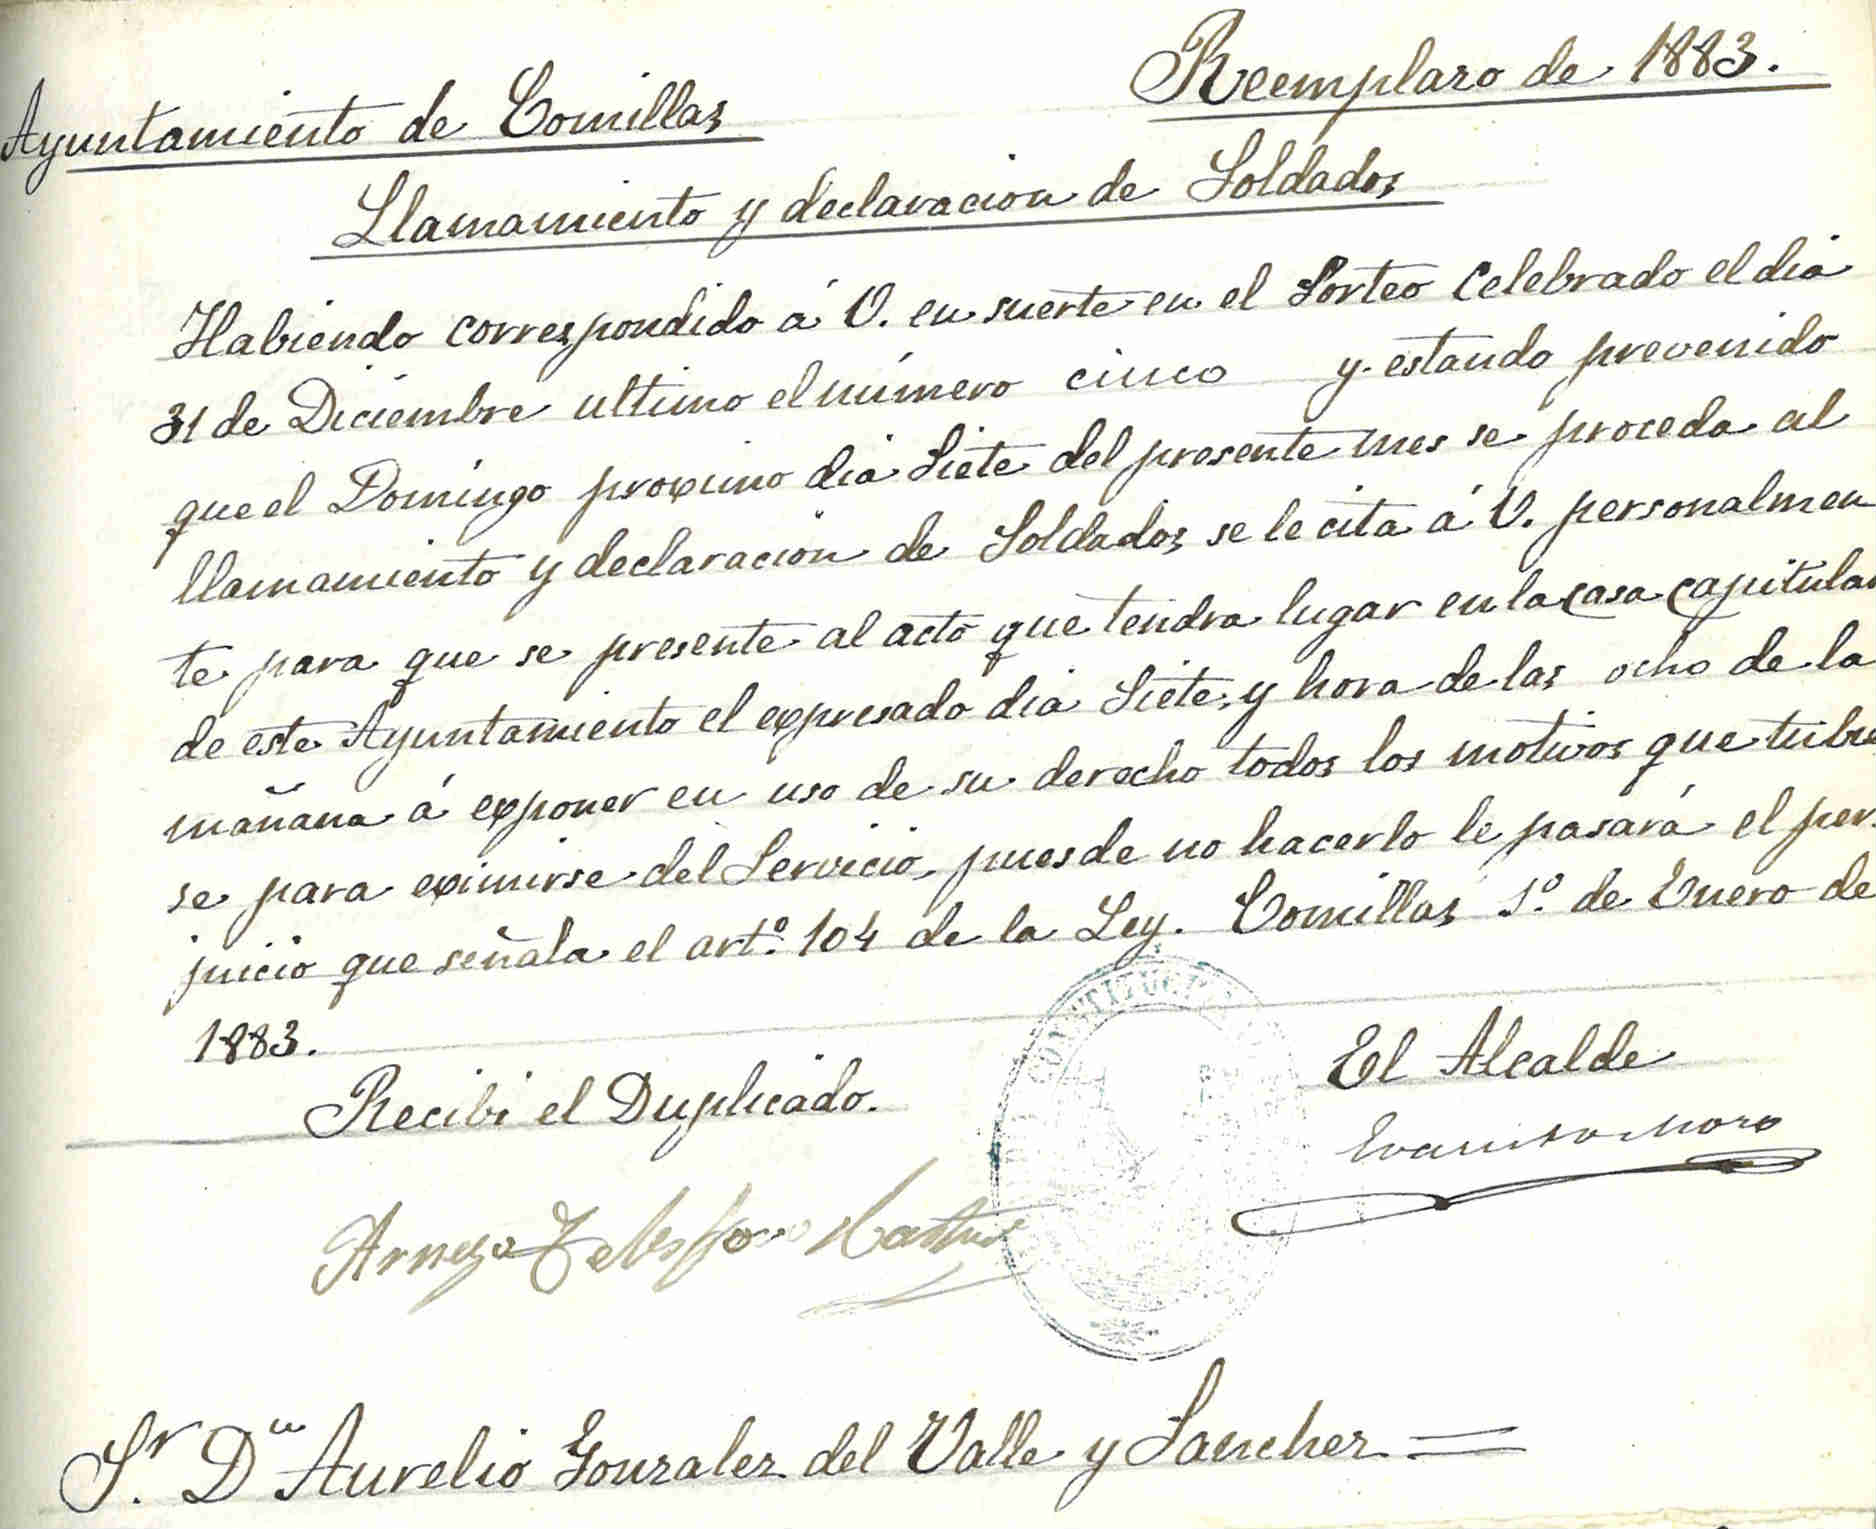 Reemplazo de 1883.
Ayuntamiento de Comillas
Llamamiento y declaracion de Soldados
Habiendo correspondido á V. en suerte en el Sorteo Celebrado el dia
31 de Diciembre ultimo el número cinco y estando prevenido
que el Domingo proximo dia Siete del presente mes se proceda al
llamamiento y declaracion de Soldados, se le cita á V. personalmen
te para que se presente al acto que tendra lugar en la casa capitular
de este Ayuntamiento el expresado dia Siete, y hora de las ocho de la
mañana á exponer en uso de su derecho todos los motivos que tubie
se para eximirse del Servicio, pues de no hacerlo le pasará el per
juicio que señala el artº. 104 de la Ley. Comillas 1º. de Enero de
1883.
CONSTITUCI
El Alcalde
Recibi el Duplicado.
Evaristo Moro
Telesforo
Sr. Dn Aurelio Gonzalez del Valle y Sanchez